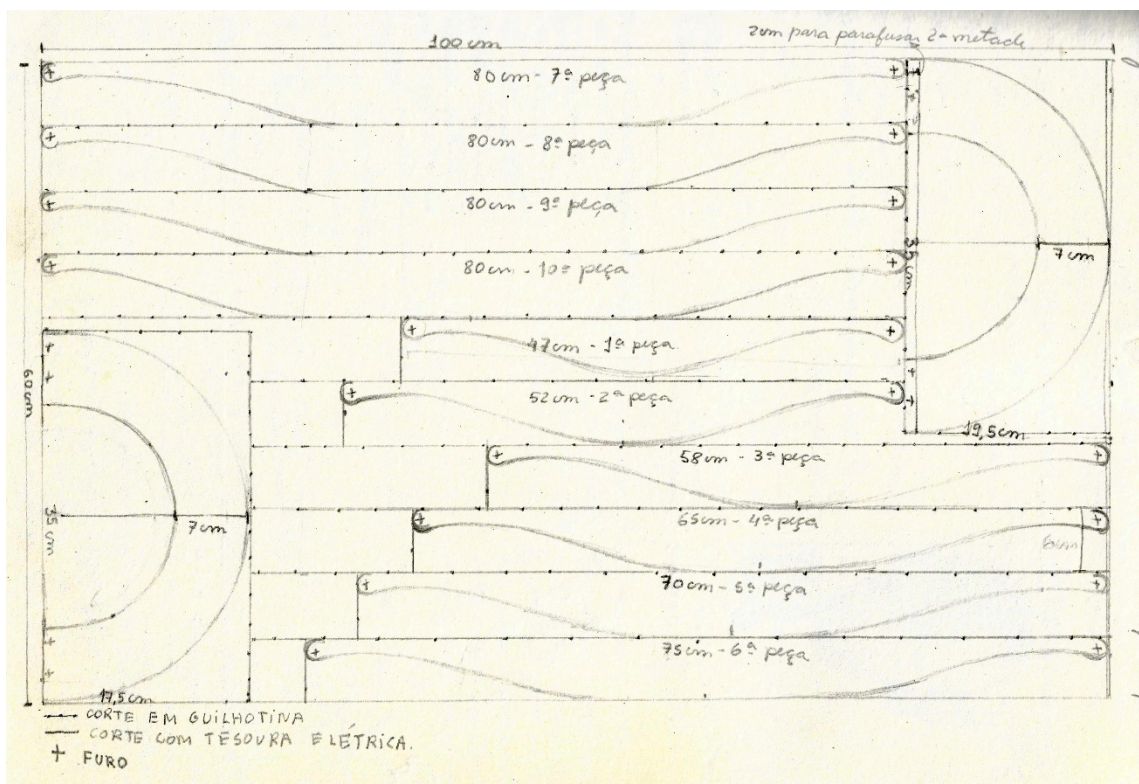 2cm para parafusar 2ª metade
100cm
80cm - 7ª peça
80cm - 8ª peça
80cm - 9ª peça
80cm - 10ª peça
35cm
7cm
47cm - 1ª peça
52cm - 2ª peça
19,5cm
58cm - 3ª peça
65cm - 4ª peça
6cm
70cm - 5ª peça
75cm - 6ª peça
60cm
35cm
7cm
17,5cm
CORTE EM GUILHOTINA
CORTE COM TESOURA ELÉTRICA.
FURO